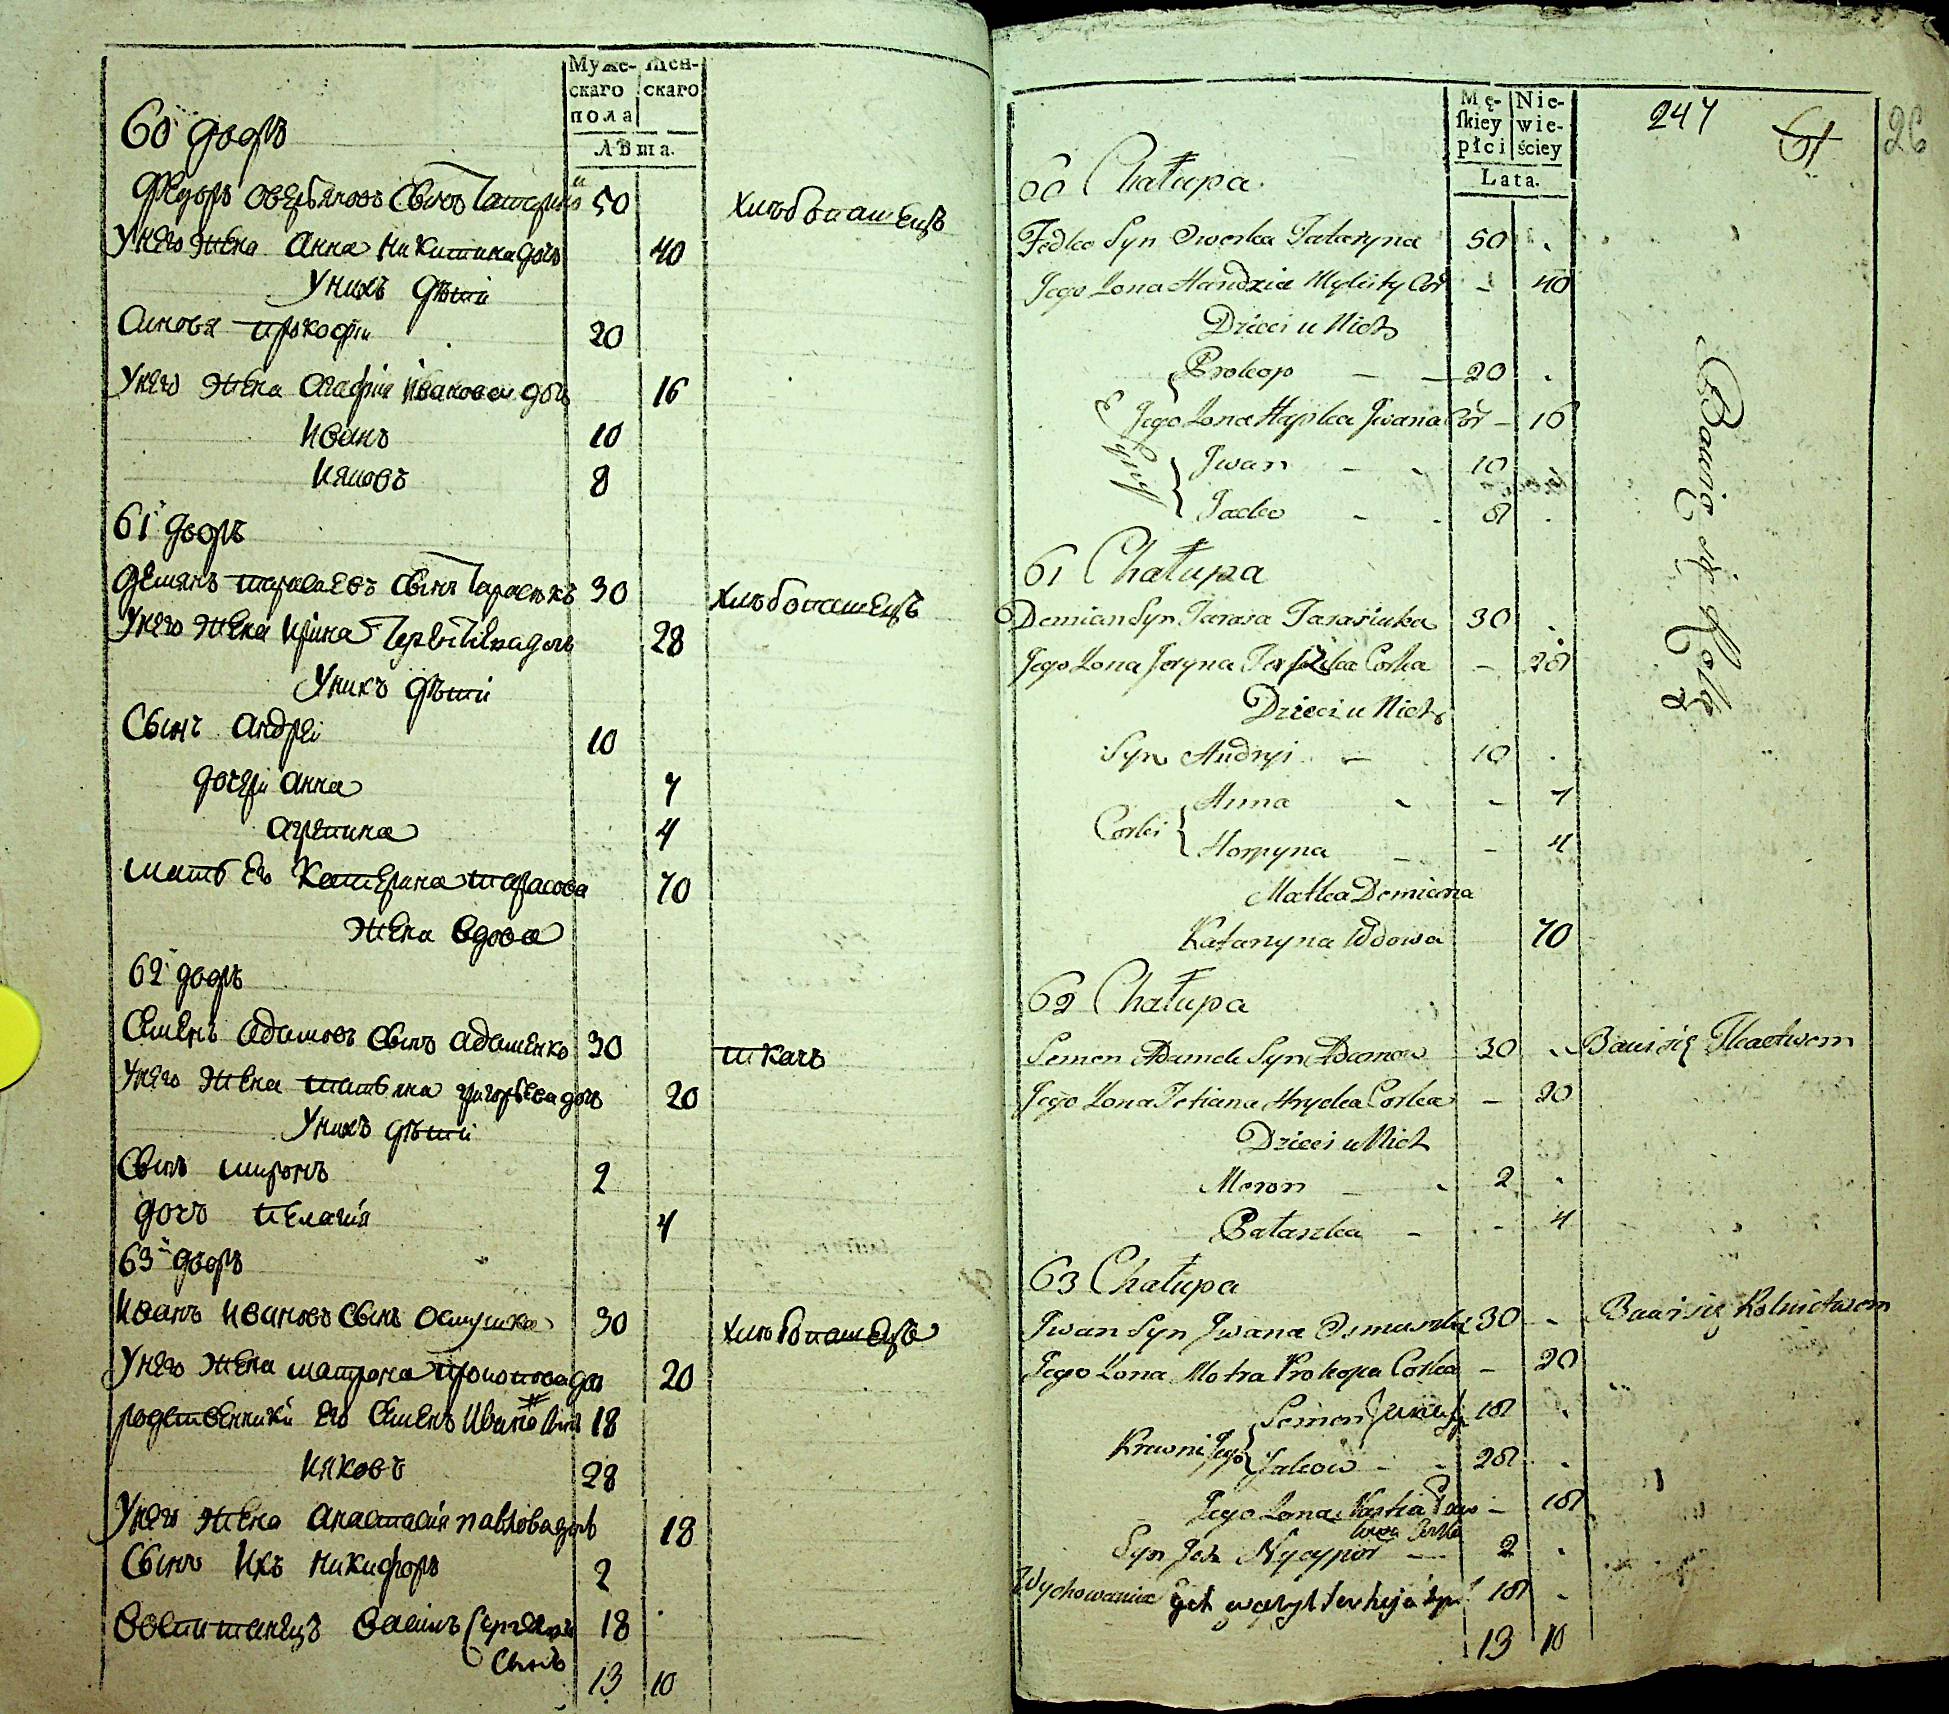 Муже- Жен-
скаго скаго
пола
Лѣта.
60 дворъ
Федоръ Оверьяновъ сынъ Татаринъ 50 хлѣбопашецъ
У него жена Анна Никитина дочь 40
У нихъ дѣти
Сыновя Прокофій 20
У него жена Агафия Иванова дочь 16
Иванъ 10
Ияковъ 8
61 дворъ
Демянъ Тарасаевъ сынъ Тарасюкъ 30 хлѣбопашецъ
У него жена Ирина дочь 28
У нихъ дѣти
Сынъ Андрей 10
дочери Анна 7
Агрепина 4
мать его Катерина Тарасова 70
жена вдова
62 дворъ
Семенъ Адамовъ сынъ Адаменко 30 ткачъ
У него жена Татьяна Григорьева дочь 20
У нихъ дѣти
Сынъ Миронъ 2
дочь Пелагія 4
63 дворъ
Иванъ Ивановъ сынъ Осмушка 30 хлѣбопашецъ
У него жена Матрона Прокопова дочь 20
родственники его Семенъ 18
Ияковъ 28
У него жена Анастасія Павлова дочь 18
Сынъ ихъ Никифоръ 2
Воспитанецъ Василь Сергеевъ 18
сынъ
13 10
Mę- Nie-
skiey wie-
płci ściey
Lata.
247
61
26
60 Chałupa
Fedko Syn Owerka Tataryna 50
Jego Zona Handzia Mykity Cór 40
Dzieci u Nich
Prokop 20
Jego Zona Hapka Jwana Cór 16
Synowie
Jwan 10
Jacko 8
Bawią się Rolą
61 Chałupa
Demian Syn Tarasa Tarasiuka 30
Jego Zona Jeryna Corka 28
Dzieci u Nich
Syn Andryi 10
Corki
Anna 7
Horpyna 4
Matka Demiana
Katarzyna Wdowa 70
62 Chałupa
Semen Adamek Syn Adamow 30 Bawi się Tkactwem
Jego Zona Tetiana Hrycka Corka 20
Dzieci u Nich
Moron 2
Pałaszka 4
63 Chałupa
Jwan Syn Jwana Osmuszka 30 Bawi się Rolnictwem
Jego Zona Motra Prokopa Corka 20
Krewni Jego
Semen 18
Jakow 28
Jego Zona Nastia Paw 18
łowa Corka
Syn Jch Nyczypor 2
Wychowaniec 18
13 10